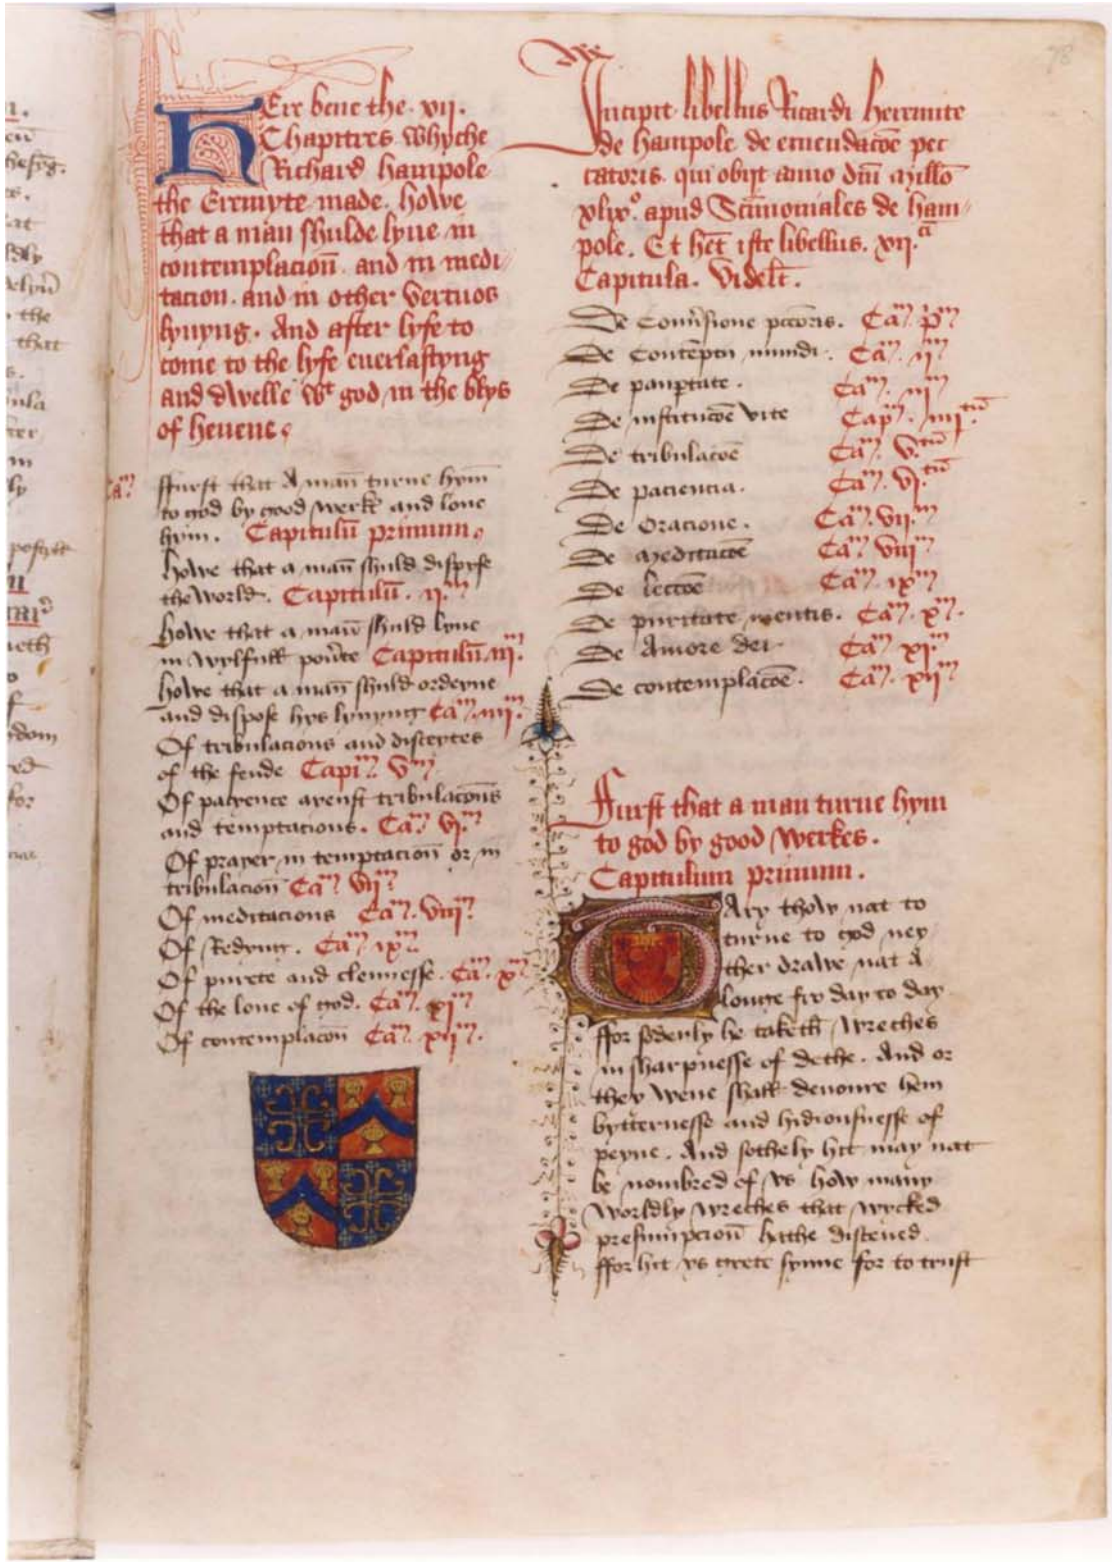 HEre bene the .xii.
Chapitres whyche
Richard hampole
the Eremyte made. howe
that a man shulde lyue in
contemplacion̄. and in medi
tacion. and in other vertuos
lyuyng. And after lyfe to
come to the lyfe euerlastyng
and dwelle wt god in the blys
of heuene.
ffurst that A man̄ turne hym̄
to god by good werk and loue
hym. Capitulū primum.
howe that a man̄ shuld dispyse
the world. Capitulū. ijm
howe that a man̄ shuld lyue
in wylfull pou̔te Capitulū iijm.
howe that a man̄ shuld ordeyne
and dispose hys lyuyng Cam. iiijm.
Of tribulacions and disceytes
of the fende Capim. vm.
Of pacyence ayenst tribulacōns
and temptacions. Cam. vim.
Of prayer in temptacion̄ or in
tribulacion̄ Cam viim.
Of meditacions Cam. viiim.
Of Redyng. Cam ixm.
Of purete and clennesse. Cam. xm.
Of the loue of god. Cam. xim
Of contemplacōn Cam. xiim.
Cam
78
Incipit libellus Ricardi heremite
de hampole de emendacōe pec
catoris. qui obijt anno dn̄i Millō
xlixo. apud Scīmoniales de ham
pole. Et hēt iste libellus. xii.a
Capitula. Videlt.
De Conu̔sione pccōris. Cam. pm
De Contēptu mundi. Cam. ijm
De paup̲tate. Cam. iijm
De institucōe vite Capm. iiijtū.
De tribulacōe Cam. v.tū
De paciencia. Cam. vi.tū
De Oracione. Cam. vii.m
De Meditacōe Cam viiim
De leccōe Cam. ixm
De puritate mentis. Cam. xm.
De Amore dei. Cam xim.
De contemplacōe. Cam. xiim
Furst that a man turne hym
to god by good Werkes.
Capitulum primum.
TAry thow nat to
turne to god ney
ther drawe nat A
longe fro day to day
ffor sodenly he taketh wreches
in sharpnesse of dethe. And or
they wene shall deuoure hem
bytternesse and hidiousnesse of
peyne. And sothely hit may nat
be nombred of vs how many
worldly wreches that wycked
presumpcion̄ hathe disceued.
ffor hit ys grete synne for to trust